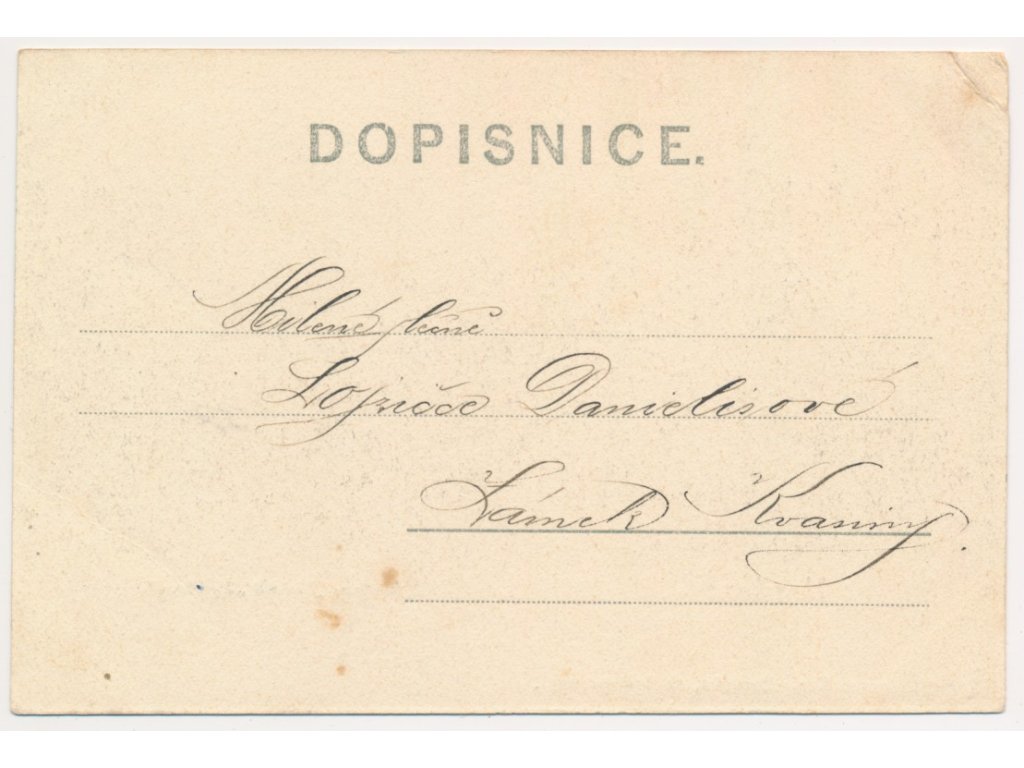 DOPISNICE.
Milené slečně
Lojzičce Danielisové
Zámek Kvasiny.